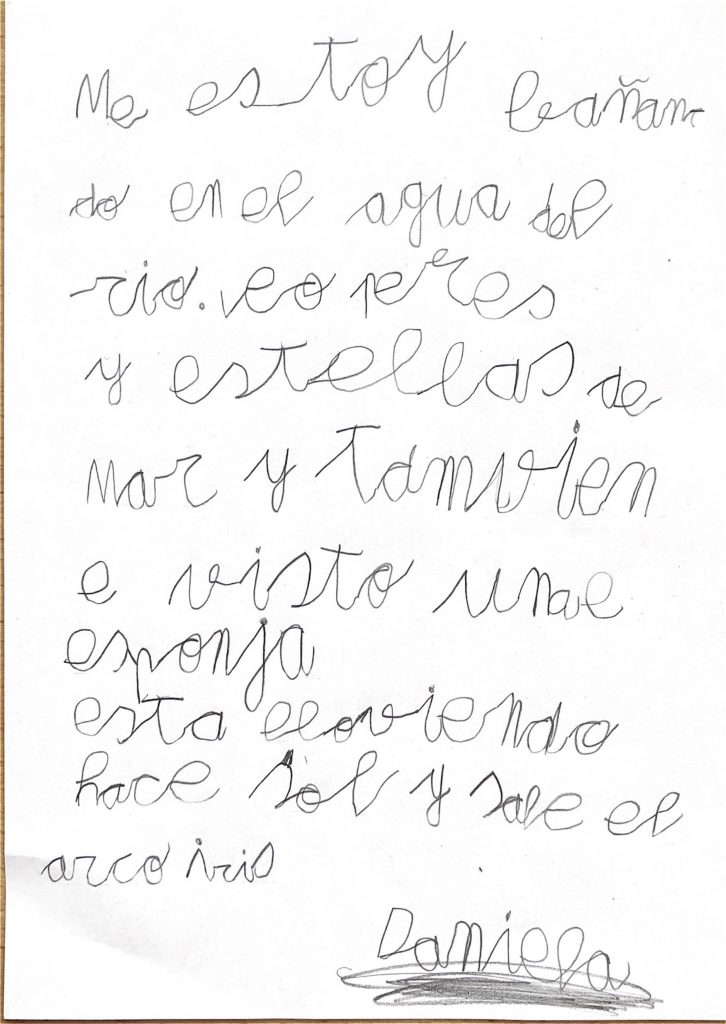 Me estoy bañan-
do en el agua del
rio. veo peces
y estellas de
mar y tamvien
e visto una e
esponja
esta lloviendo
hace sol y sale el
arco iris
Daniela